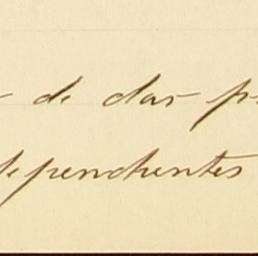 de das p
dependentes